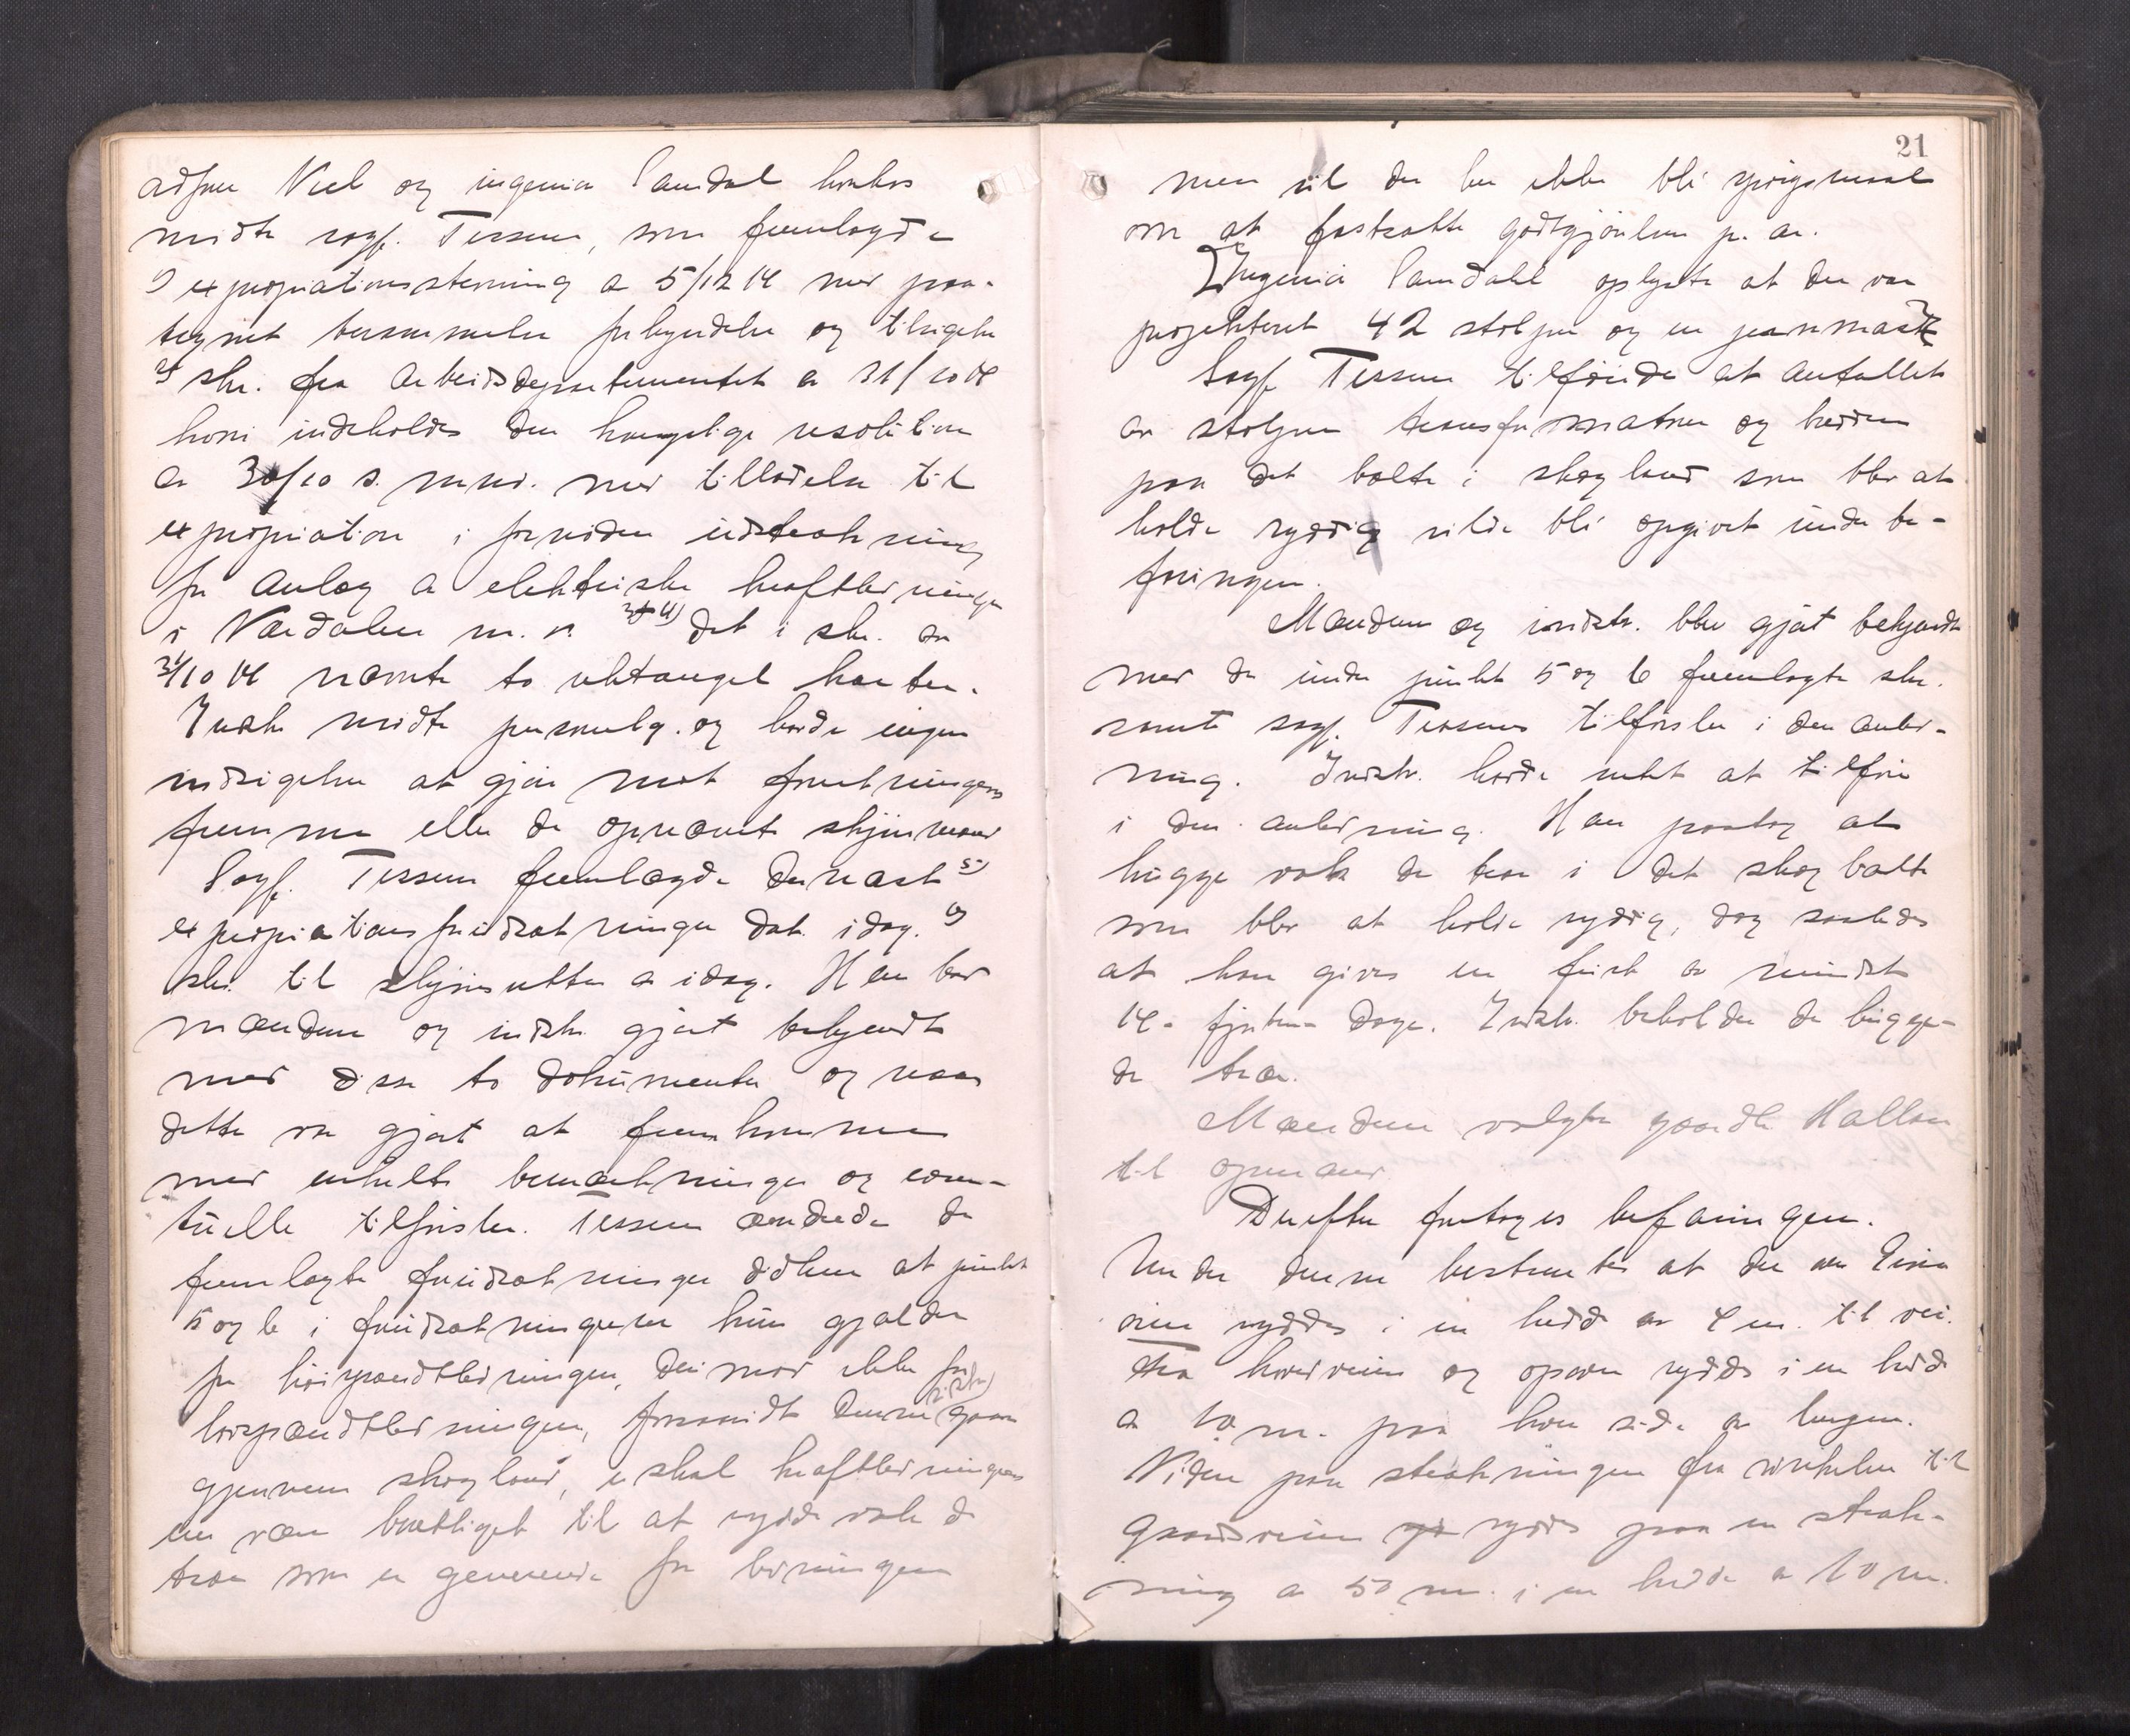 adfrer Niel og ingeniør Sandal hvorhos
mødte sagf. Tessem, som fremlagde
1) expropriationsstevning av 5/12 14 med paa-
tegnet berammelse forkyndelse og tilsigelse
2) skr. fra Arbeidsdepartementet av 31/10 14
hvori indeholdes den kongelige resolution
av 30/10 s. mnd. med tilladelse til
expropriation i fornøden utstrækning
for anlæg av elektriske kraftledninger
i Værdalen m. v. 3 & 4) det i skr. av
31/10 14 nævnte to uktangel karter.
Indst. mødte personlig og havde ingen
indsigelse at gjøre mot forretningens
fremme eller de opnævnte skjønsmænd
Sagf. Tessem fremlagde dernæst 5)
expropriationsforutsætninger dat. idag. 6)
skr. til skjønsretten av idag. Han bad
mændene og indst. gjort bekjendt
med disse to dokumenter og naar
dette var gjort at fremkomme
med enkelte bemerkninger og even-
tuelle tilførsler. Tessem ændrede de
fremlagte forutsætninger didhen at punkt
5 og 6 i forutsætningerne kun gjælder
for høispændtledningen, derimot ikke for
lavspændtledningen, forsaavidt denne gaar
gjennem skogland, skal kraftledningens
eier være berettiget til at rydde væk de
trær som er generende for ledningen
21
men vil der her ikke bli spørgsmaal
om at fastsætte godtgjørelsen p. ar.
Ingeniør Sandahl oplyste at der var
projekteret 42 stolper og en jernmast
Sagf. Tessem tilføiede at antallet
av stolper transformatorer og bredden
paa det bælte i skogland som blev at
holde ryddig vilde bli opgivet under be-
faringen.
Mændene og indstr. blev gjort bekjendt
med de under punkt 5 og 6 fremlagte skr.
samt sagf. Tessems tilførsler i den anled-
ning. Indstr. havde intet at tilføie
i den anledning. Han paatog at
hugge væk de trær i det skogbælte
som blev at holde ryddig, dog saaledes
at han gives en frist av mindst
14 - fjorten - dage. Indstr. beholder de hugge-
de trær.
Mændene valgte gaardbr. Hallan
til opmand
Derefter foretoges befaringen.
Under denne bestemtes at der
ryddes i en bredde av 4 m. til vei.
Fra hovedveien og opover ryddes i en bredde
av 10 m. paa hver side av linjen.
Videre paa strækningen fra vinkelen til
Gaardsveien ryddes paa en stræk-
ning av 50 m. i en bredde av 10 m.